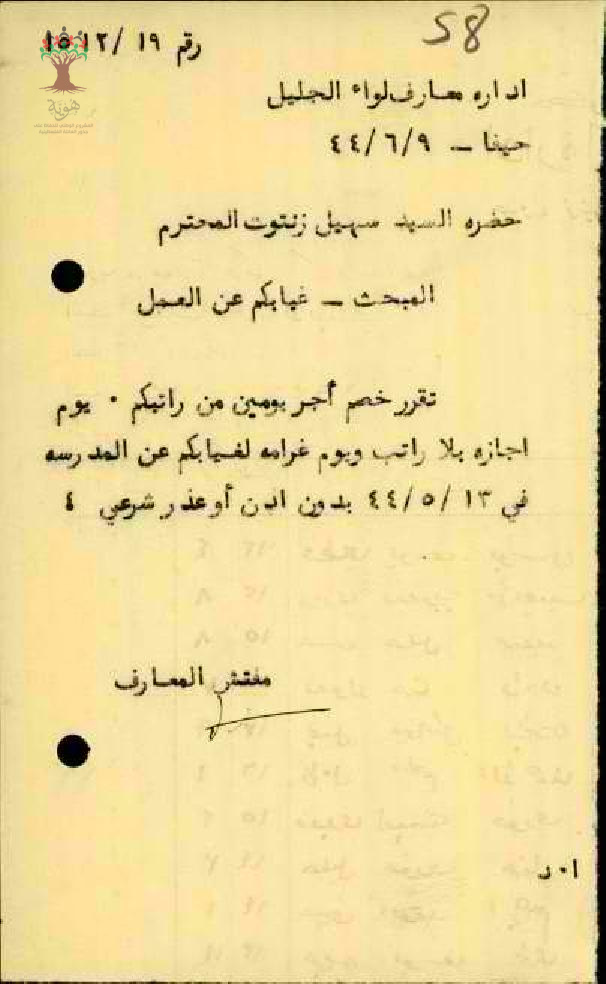 58
رقم ١٩ /١٥١٢
هوية
اداره معارف لواء الجليل
حيفا – ٤٤/٦/٩
حضره السيد سهيل زنتوت المحترم
المبحث – غيابكم عن العمل
تقرر خصم أجر يومين من راتبكم ٠ يوم
اجازه بلا راتب ويوم غرامه لغيابكم عن المدرسه
في ١٣ /٤٤/٥ بدون اذن أو عذر شرعي ٤
مفتش المعارف
ا٠ر